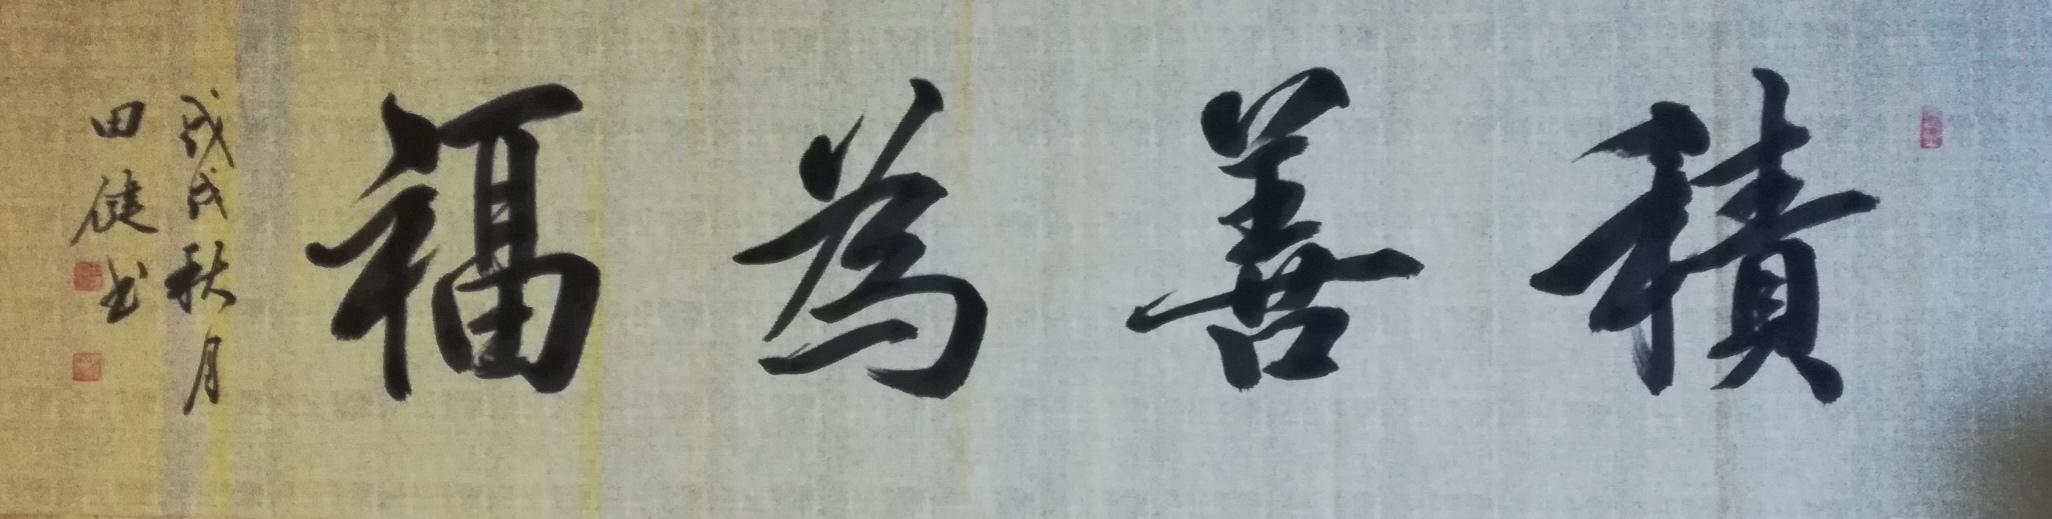 積善為福
戊戌秋月
田健书